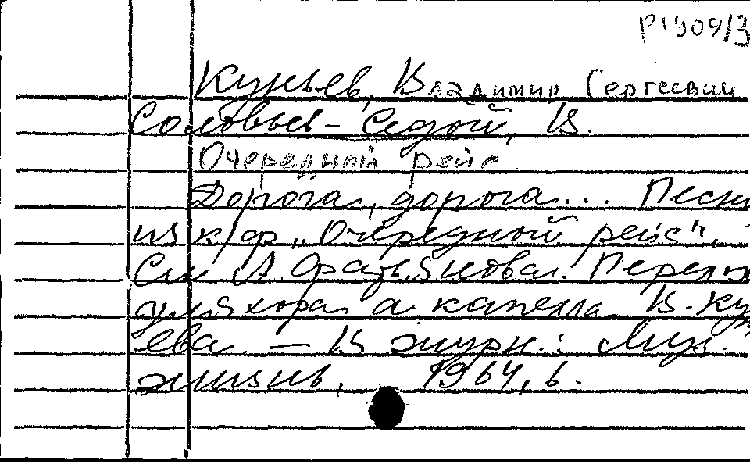 Р1909/3
Куньев, Владимир Сергеевич
Соловьев-Седой, В.
Очередной рейс
Дорога, дорога... Песн
из к/ф „Очередной рейс".
Сл. А. Фатьянова. Перелож
для хора а капелла В. Ку
ева – В журн.: Муз.
жизнь, 1964, 6.